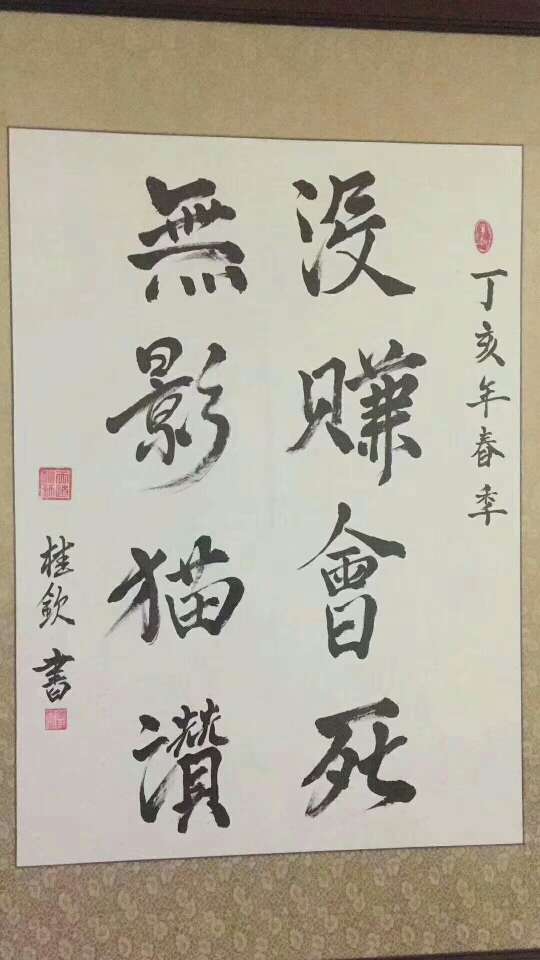 丁亥年春季
没賺會死
無影猫讚
桂欽書